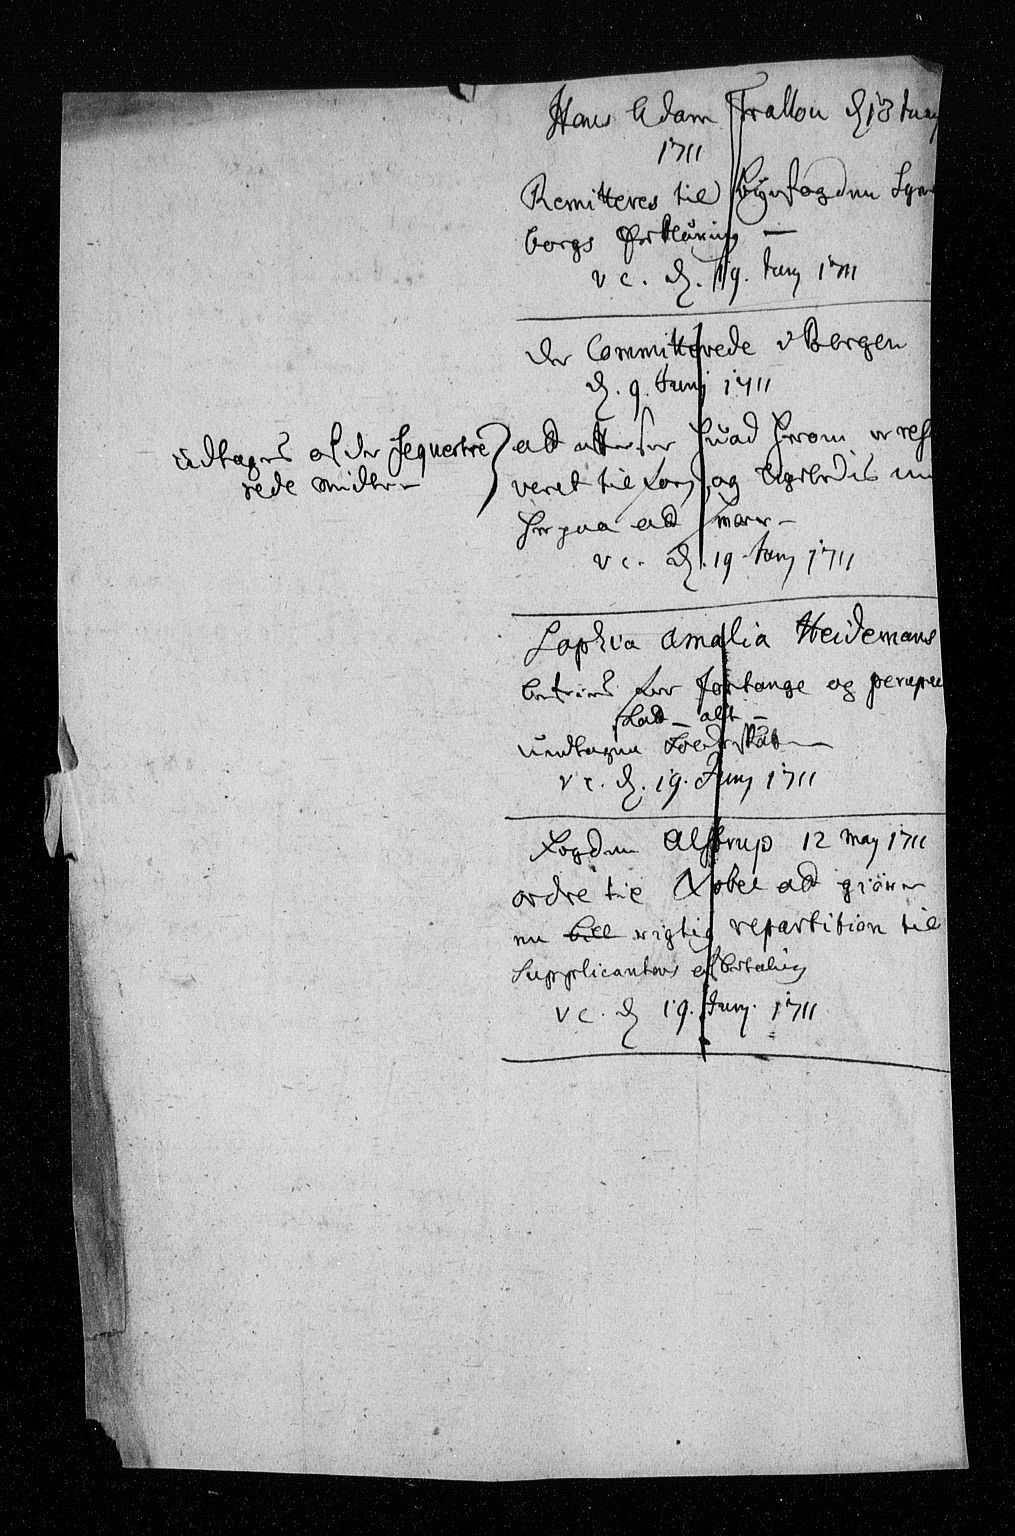 Hans Adam Frallou d. 13 Juny
1711
Remitteres til Byefogden
borgs Erklæring —
v c. d. 19. Juny 1711
der Committerede i Bergen
d. 9. Junj 1711
udtages af der sequestre
rede midler
att efterser huad herom er
veret til og
her paa att
v c. d. 19. Juny 1711
Sophia Amalia Heidemans
betries for fortange og
Skatt — alt —
undtagen
v c. d. 19. Juny 1711
Fogden Alstrup 12 May 1711
ordre til Nobel att giøre
en bill rigtig repartition til
Supplicantens betaling
v c. d 19. Juny. 1711